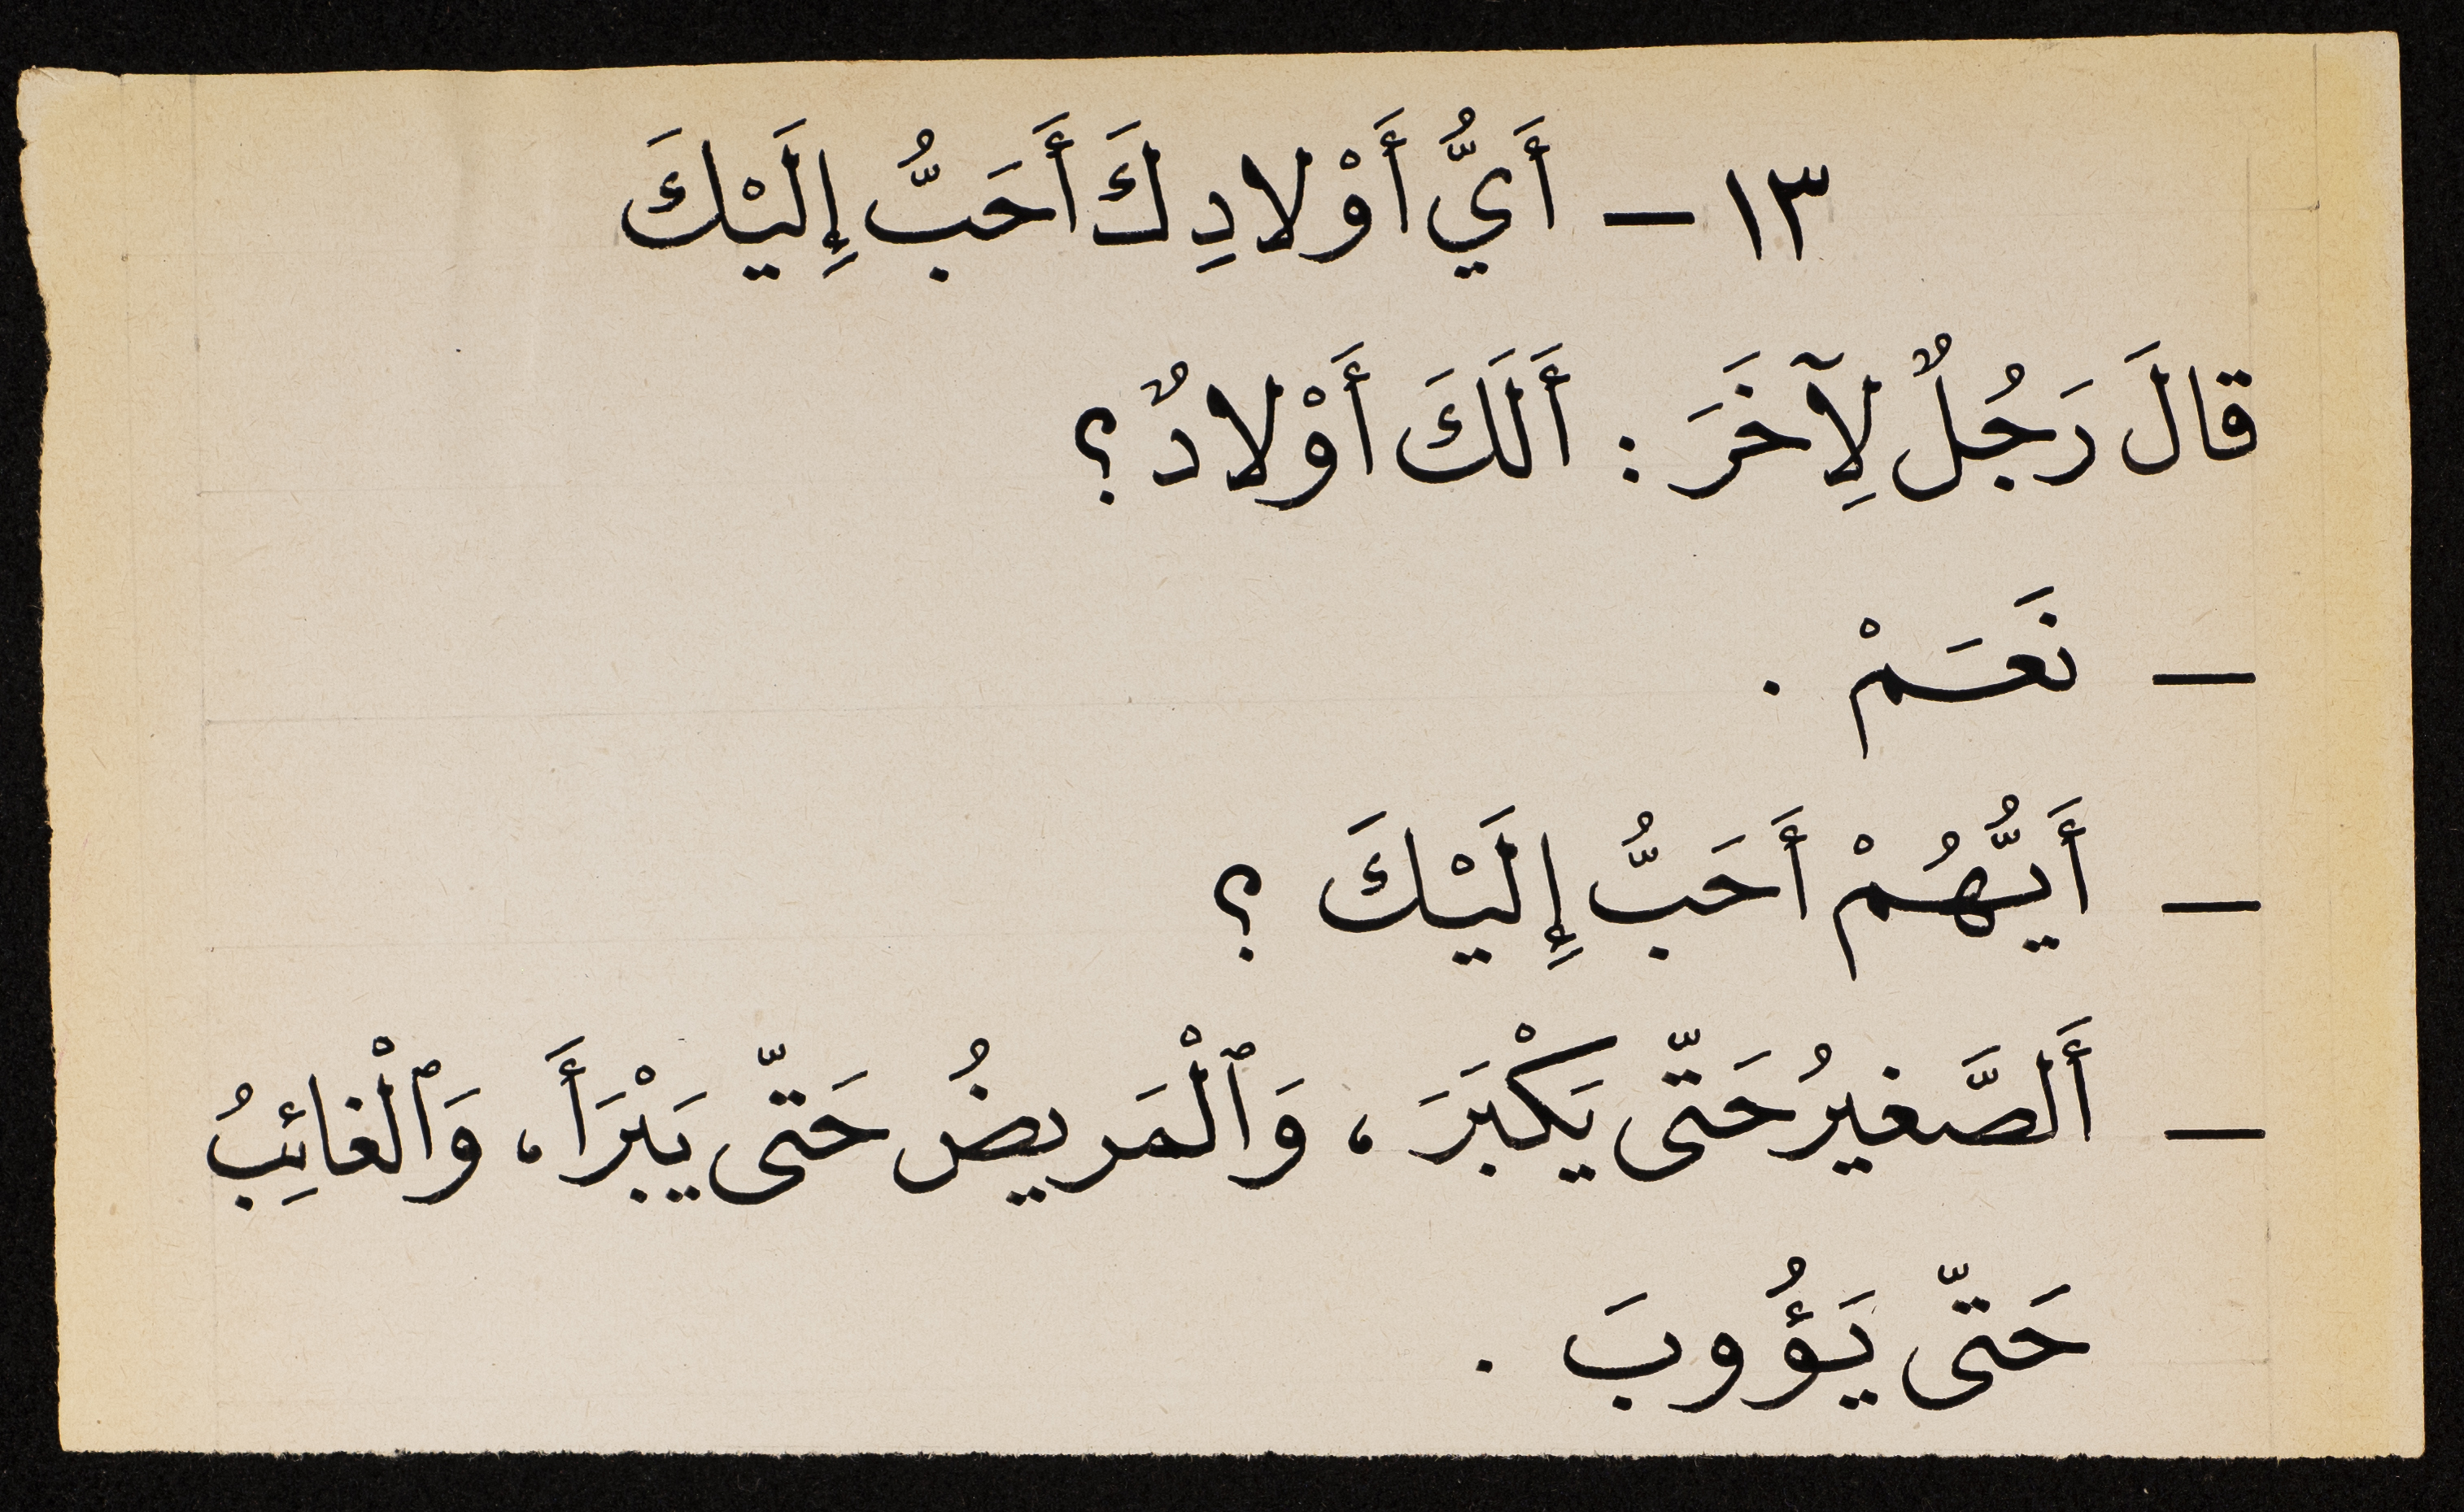 ١٣ – أَيُّ أَوْلادِكَ أَحَبُّ إِلَيْكَ
قالَ رَجُلٌ لِآخَرَ : أَلَكَ أَوْلادٌ ؟
– نَعَمْ .
– أَيُّهُمْ أَحَبُّ إِلَيْكَ ؟
– أَلصَّغيرُ حَتّى يَكْبَرَ ، وَٱلْمَريضُ حَتّى يَبْرَأَ ، وَٱلْغائِبُ
حَتّى يَؤُوبَ .